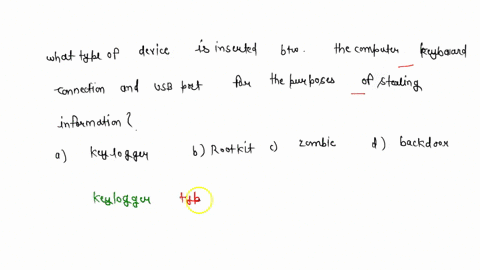 what type of device is inserted btw. the computer keyboard
connection and USB port for the purposes of stealing
information?
a) keylogger b) Rootkit c) zombie d) backdoor
keylogger typ